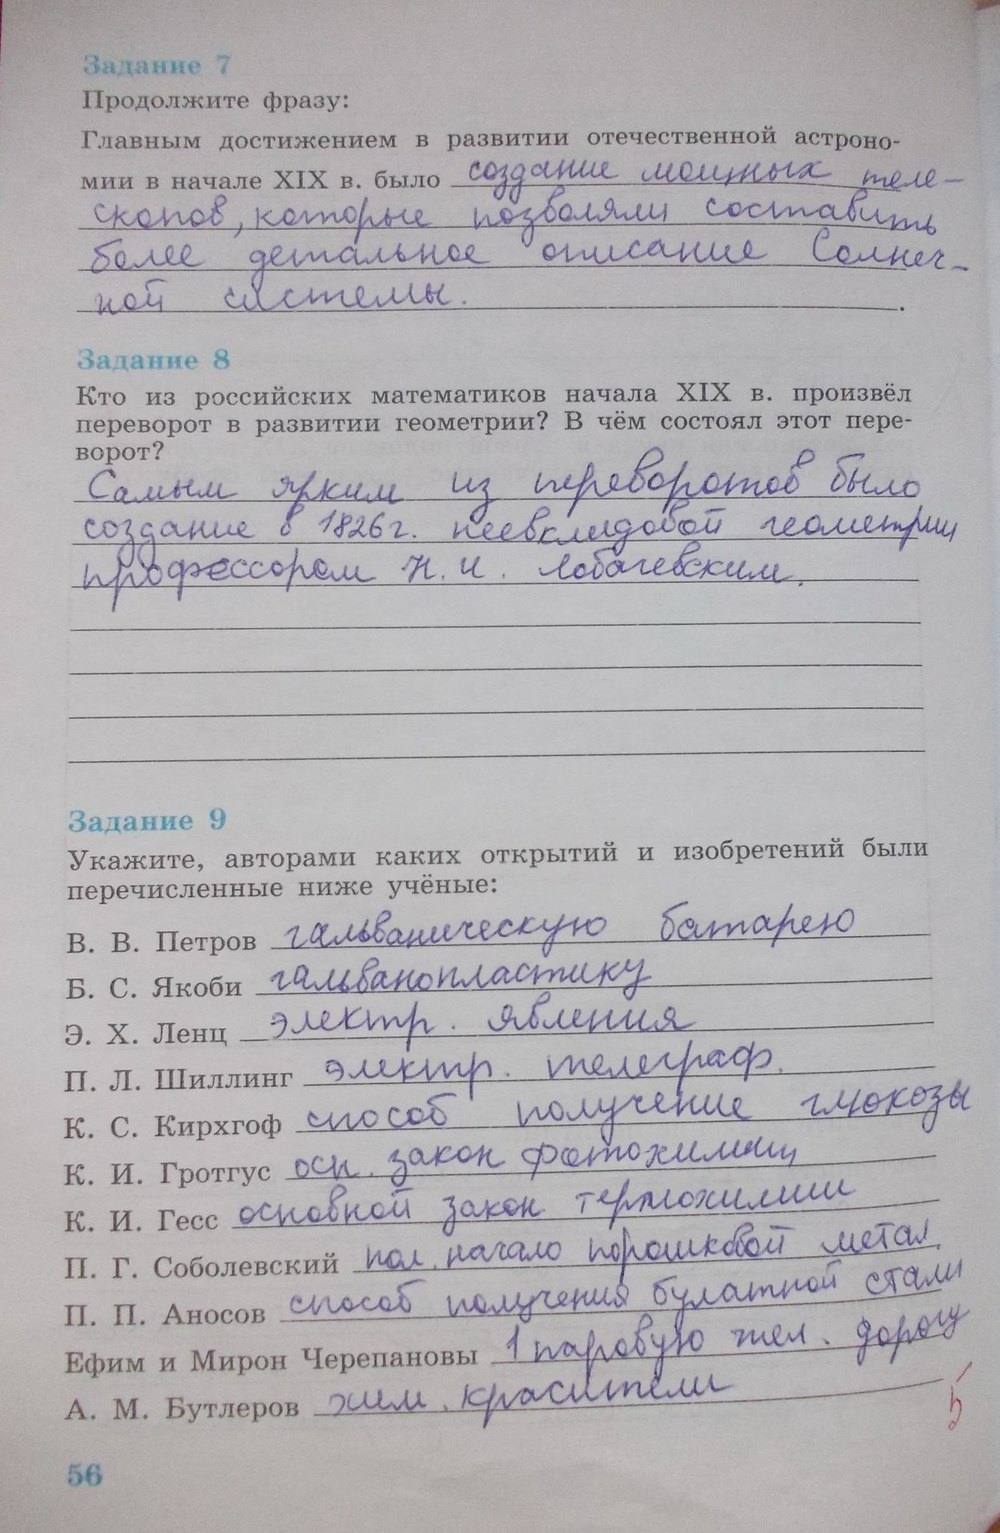 Задание 7
Продолжите фразу:
Главным достижением в развитии отечественной астроно-
мии в начале XIX в. было создание мощных теле-
скопов, которые позволяли составить
более детальное описание Солнеч-
ной системы.
Задание 8
Кто из российских математиков начала XIX в. произвёл
переворот в развитии геометрии? В чём состоял этот пере-
ворот?
Самым ярким из переворотов было
создание в 1826г. неевклидовой геометрии
профессором Н. И. Лобачевским.
Задание 9
Укажите, авторами каких открытий и изобретений были
перечисленные ниже учёные:
В. В. Петров гальваническую батарею
Б. С. Якоби гальванопластику
Э. Х. Ленц электр. явления
П. Л. Шиллинг электр. телеграф.
К. С. Кирхгоф способ получение глюкозы
К. И. Гротгус осн. закон фотохимии
К. И. Гесс основной закон термохимии
П. Г. Соболевский пол. начало порошковой метал.
П. П. Аносов способ получения булатной стали
Ефим и Мирон Черепановы 1 паровую жел. дорогу
А. М. Бутлеров хим. красители
5
56